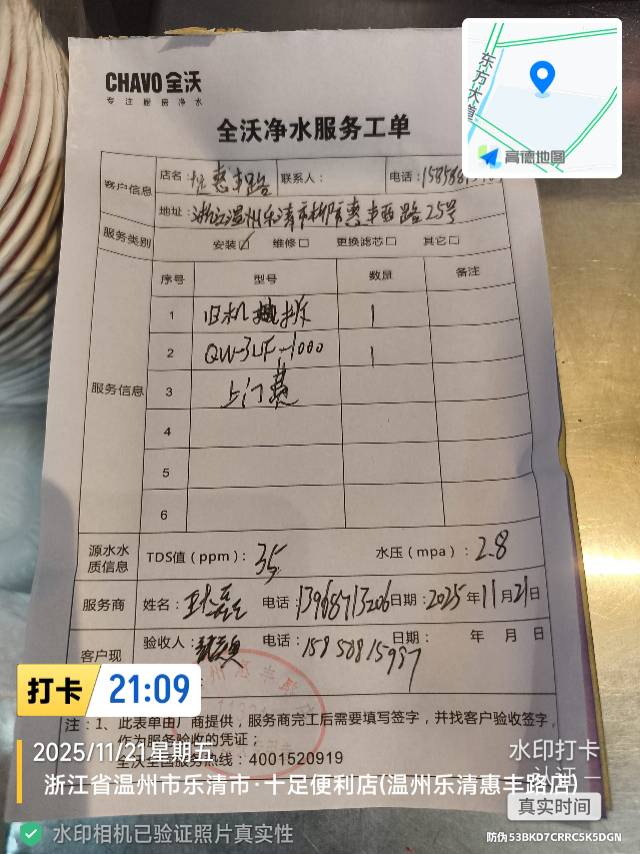 东方大道
高德地图
CHAVO 全沃
专注厨房净水
全沃净水服务工单
客户信息 店名: 惠丰路 联系人: 电话:
地址: 浙江温州乐清市柳市惠丰西路25号
服务类别 安装☑ 维修□ 更换滤芯□ 其它□
服务信息
序号 型号 数量 备注
1 旧机拆 1
2 QW-3LF-1000 1
3 上门费
4
5
6
源水水质信息 TDS值(ppm): 35 水压(mpa): 2.8
服务商 姓名: 电话: 13968713206 日期: 2025年11月21日
客户现 验收人: 电话: 15850815997 日期: 年 月 日
注:1、此表单由厂商提供,服务商完工后需要填写签字,并找客户验收签字,
作为服务验收的凭证;
全沃全国服务热线:4001520919
打卡 21:09
2025/11/21 星期五
浙江省温州市乐清市·十足便利店(温州乐清惠丰路店)
水印相机已验证照片真实性
水印打卡
真实时间
防伪 53BKD7CRRC5K5DGN